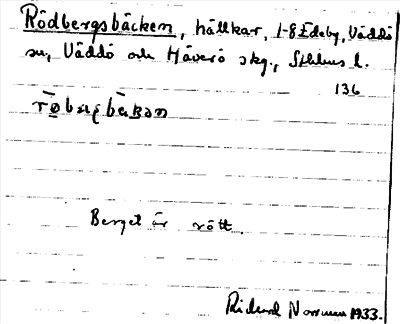 Rödbergsbäcken, hällkar, 1-8 Edeby, Väddö
sn, Väddö och Häverö skg., Sthlms l.
136
Berget är rött.
Richard Norrman 1933.